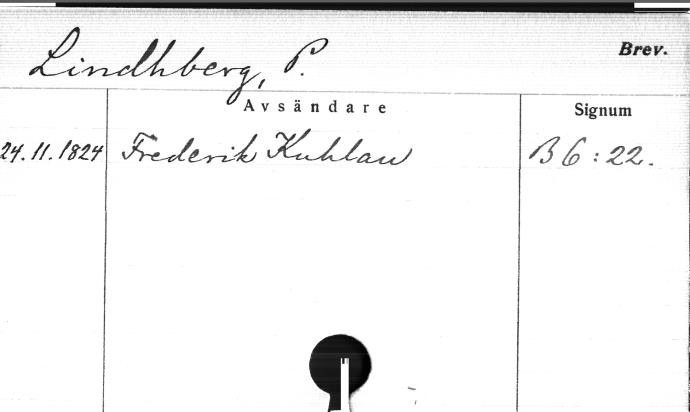 Lindhberg, P.
Brev.
Avsändare
Signum
24.11.1824 Frederik Kuhlau B 6 : 22.